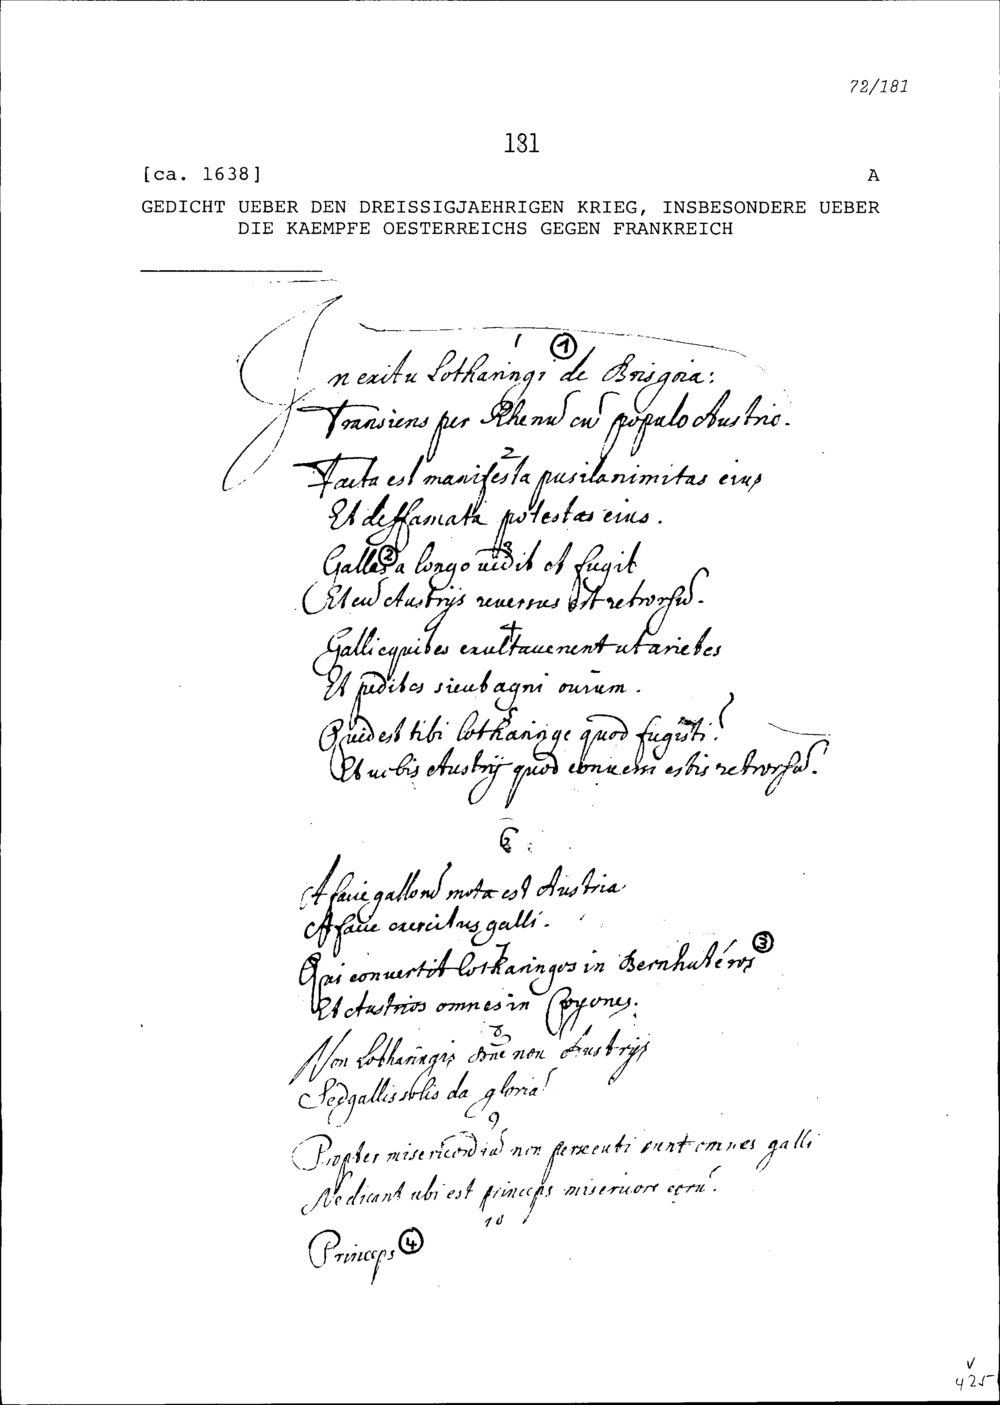 72/181
181
[ca. 1638] A
GEDICHT UEBER DEN DREISSIGJAEHRIGEN KRIEG, INSBESONDERE UEBER
DIE KAEMPFE OESTERREICHS GEGEN FRANKREICH
1 ①
In exitu Lotharingi de Brisgoia:
Transiens per Rhenū cū populo Austrio.
2
Facta est manifesta pusilanimitas eius
Et deffamata potestas eius.
3
Gallos ② a longo uidit et fugit
Et cū Austrijs reuersus est retrorsū.
4
Galli equites exultauerunt ut arietes
Et pedites sicut agni ouium.
5
Quid est tibi Lotharinge quod fugisti?
Et uobis Austrij quod conuersi estis retrorsū?
6
A facie gallorū mota est Austria
A facie exercitus galli.
7
Qui conuertit Lotharingos in Bernhuteros ③
Et Austrios omnes in Coyones.
8
Non Lotharingis Dne non Austrijs
Sed gallis solis da gloriā!
9
Propter misericordiā non persecuti sunt omnes galli
Ne dicant ubi est princeps miseriore eorū.
10
Princeps ④
v
425